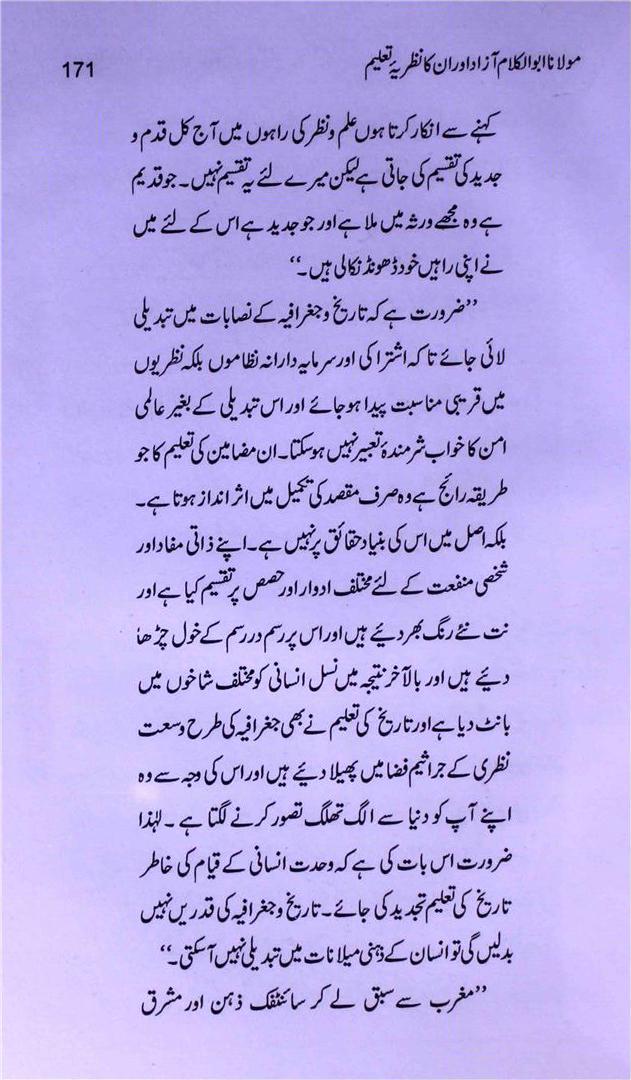 مولانا ابوالکلام آزاد اور ان کا نظریۂ تعلیم 171
کہنے سے انکار کرتا ہوں علم و نظر کی راہوں میں آج کل قدم و
جدید کی تقسیم کی جاتی ہے لیکن میرے لئے یہ تقسیم نہیں۔ جو قدیم
ہے وہ مجھے ورثہ میں ملا ہے اور جو جدید ہے اس کے لئے میں
نے اپنی راہیں خود ڈھونڈ نکالی ہیں۔‘‘
’’ضرورت ہے کہ تاریخ و جغرافیہ کے نصابات میں تبدیلی
لائی جائے تاکہ اشتراکی اور سرمایہ دارانہ نظاموں بلکہ نظریوں
میں قریبی مناسبت پیدا ہوجائے اور اس تبدیلی کے بغیر عالمی
امن کا خواب شرمندۂ تعبیر نہیں ہوسکتا۔ ان مضامین کی تعلیم کا جو
طریقہ رائج ہے وہ صرف مقصد کی تکمیل میں اثر انداز ہوتا ہے۔
بلکہ اصل میں اس کی بنیاد حقائق پر نہیں ہے۔ اپنے ذاتی مفاد اور
شخصی منفعت کے لئے مختلف ادوار اور حصص پر تقسیم کیا ہے اور
نت نئے رنگ بھر دیئے ہیں اور اس پر رسم در رسم کے خول چڑھا
دیئے ہیں اور بالآخر نتیجہ میں نسل انسانی کو مختلف شاخوں میں
بانٹ دیا ہے اور تاریخ کی تعلیم نے بھی جغرافیہ کی طرح وسعت
نظری کے جراثیم فضا میں پھیلا دیئے ہیں اور اس کی وجہ سے وہ
اپنے آپ کو دنیا سے الگ تھلگ تصور کرنے لگتا ہے ۔ لہٰذا
ضرورت اس بات کی ہے کہ وحدت انسانی کے قیام کی خاطر
تاریخ کی تعلیم تجدید کی جائے۔ تاریخ و جغرافیہ کی قدریں نہیں
بدلیں گی تو انسان کے ذہنی میلانات میں تبدیلی نہیں آسکتی۔‘‘
’’مغرب سے سبق لے کر سائنٹفک ذہن اور مشرق